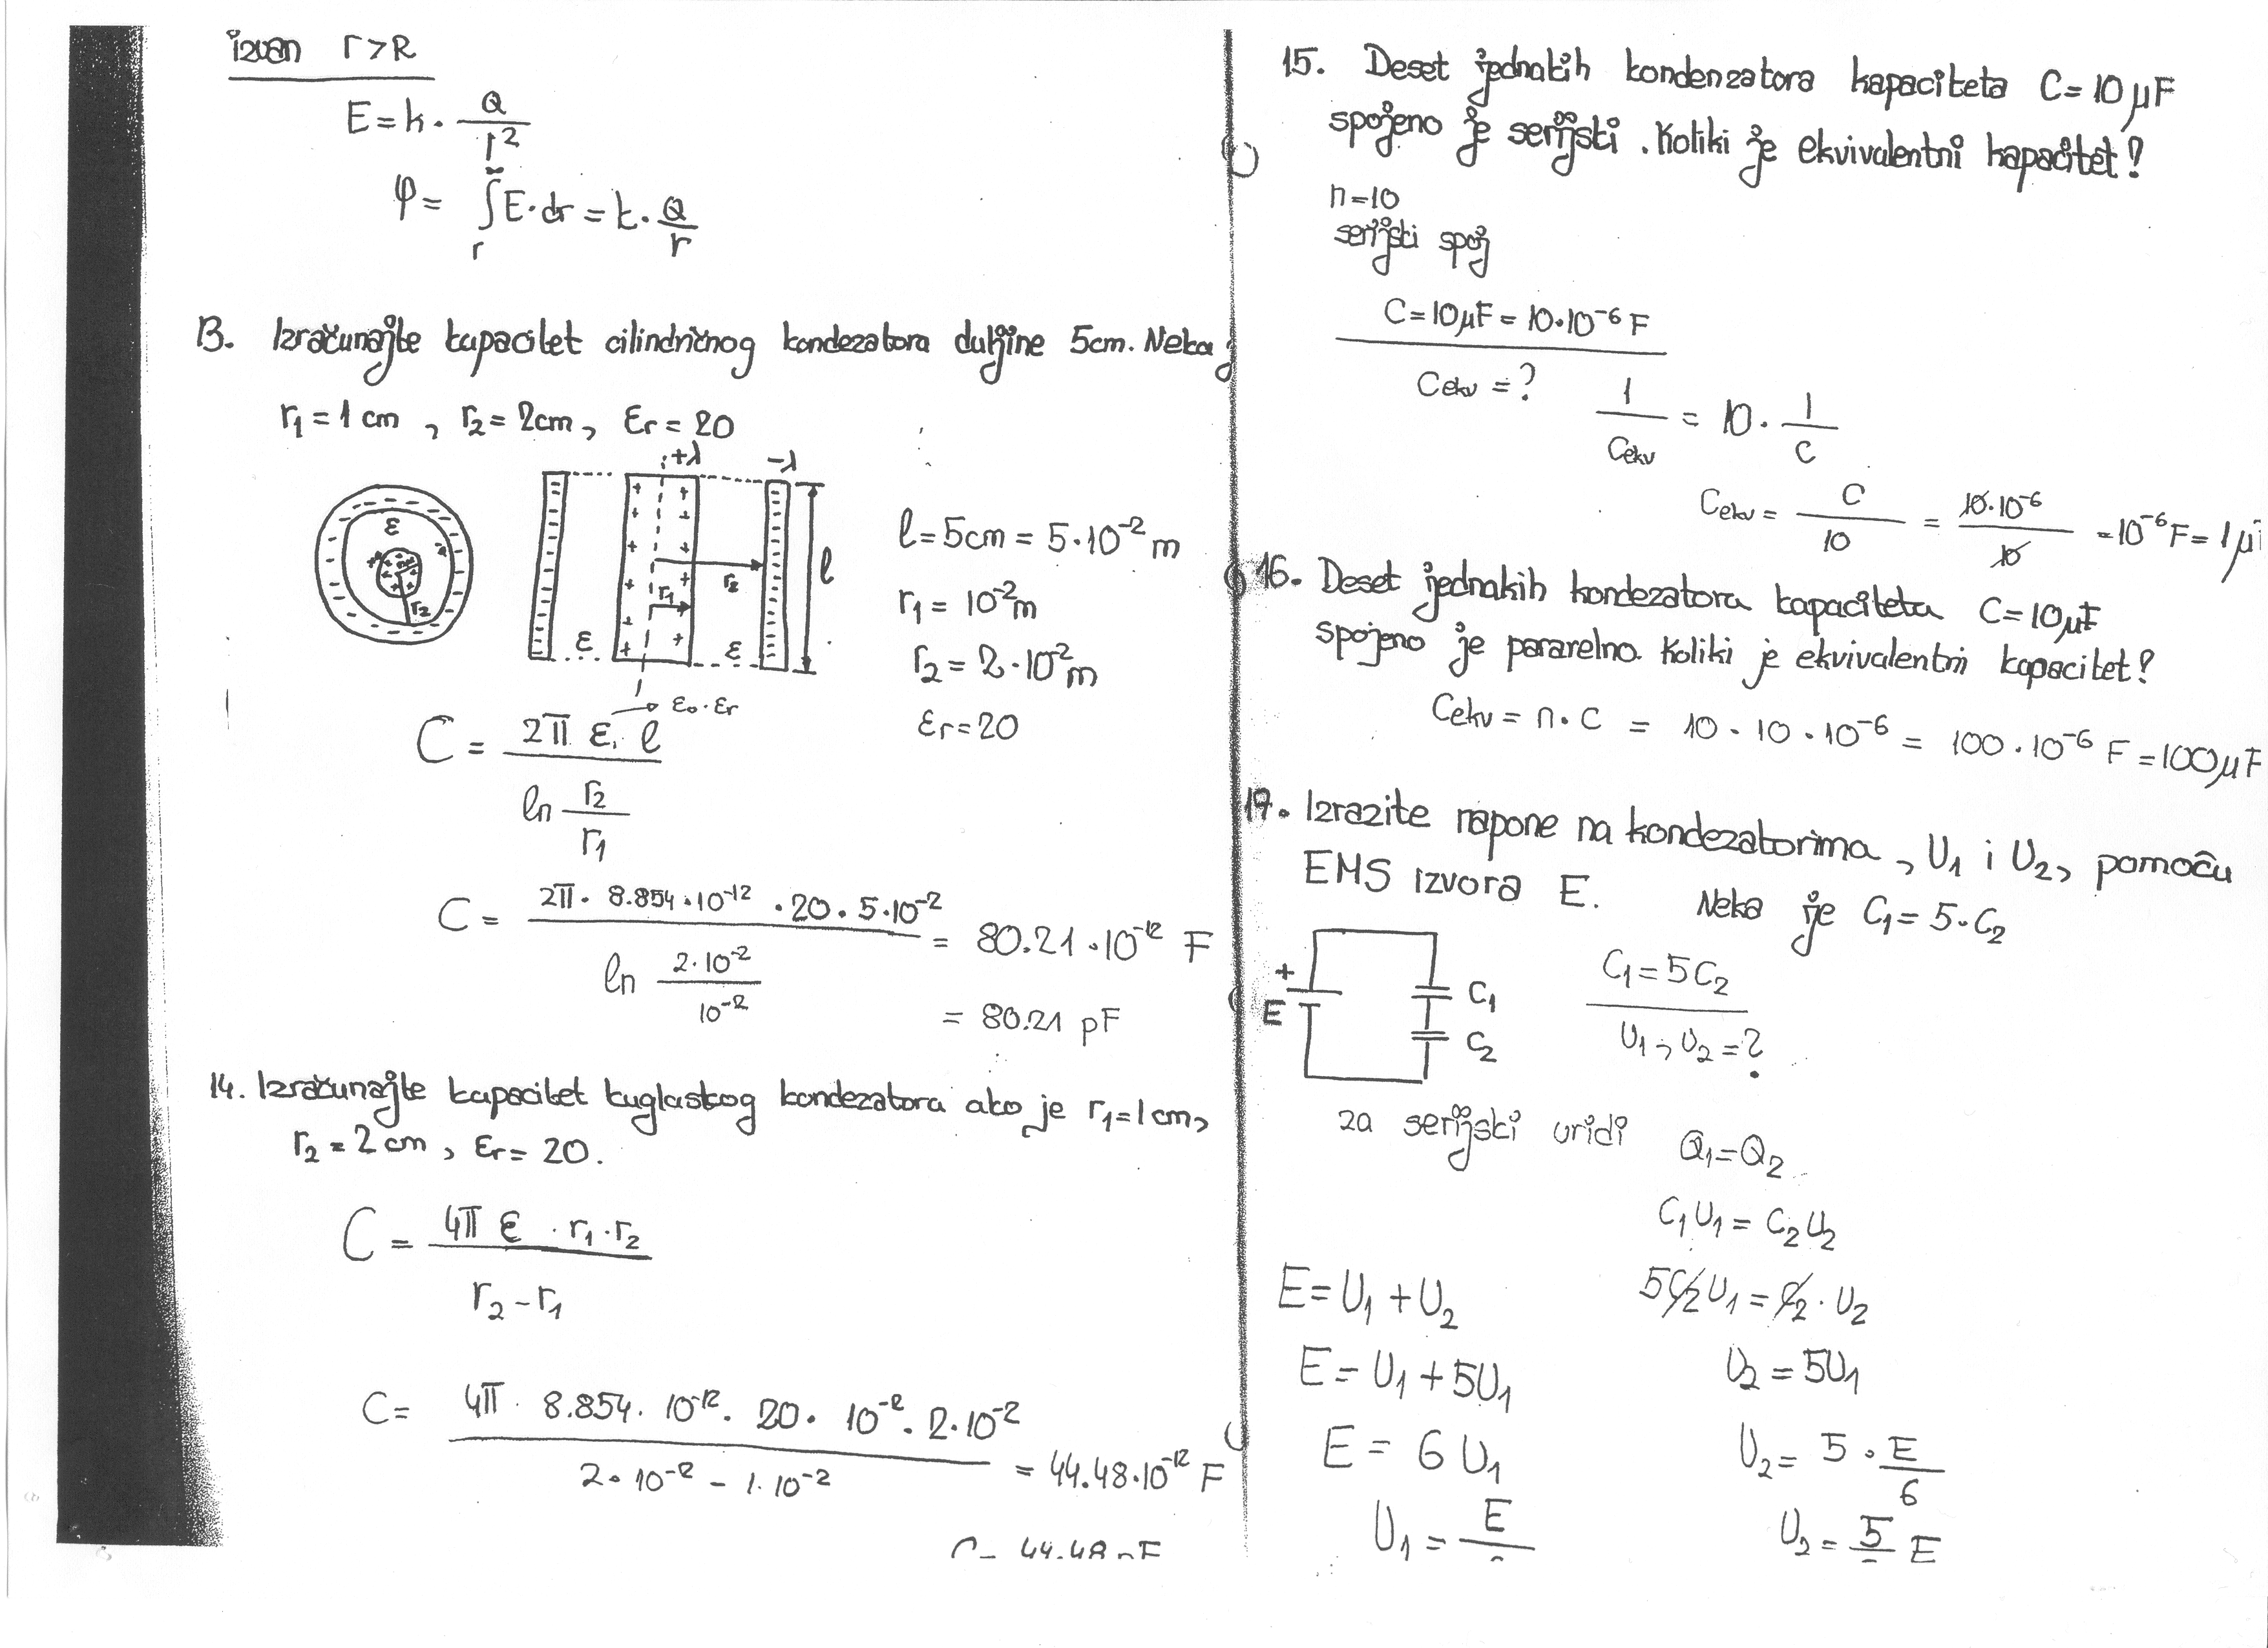 izvan r>R
E=k·Q/r²
φ= ∫_r^∞ E·dr = k·Q/r
13. Izračunajte kapacitet cilindričnog kondezatora duljine 5cm. Neka j
r₁=1cm, r₂=2cm, εr=20
+λ -λ
ε r₂
r₁ r₂ l
ε ε
l=5cm=5·10⁻² m
r₁=10⁻²m
r₂=2·10⁻²m
εr=20
→ ε₀·εr
C = 2π ε·l / ln r₂/r₁
C = 2π·8.854·10⁻¹²·20·5·10⁻² / ln 2·10⁻²/10⁻² = 80.21·10⁻¹² F
= 80.21 pF
14. Izračunajte kapacitet kuglastog kondezatora ako je r₁=1cm,
r₂=2cm, εr=20.
C = 4π ε·r₁·r₂ / r₂-r₁
C= 4π·8.854·10⁻¹²·20·10⁻²·2·10⁻² / 2·10⁻²-1·10⁻² = 44.48·10⁻¹² F
C= 44.48 pF
15. Deset jednakih kondenzatora kapaciteta C=10μF
spojeno je serijski. Koliki je ekvivalentni kapacitet?
n=10
serijski spoj
C=10μF=10·10⁻⁶ F
Cekv=?
1/Cekv = 10·1/C
Cekv = C/10 = 10·10⁻⁶/10 = 10⁻⁶F=1μ
16. Deset jednakih kondezatora kapaciteta C=10μF
spojeno je pararelno. Koliki je ekvivalentni kapacitet?
Cekv=n·C = 10·10·10⁻⁶ = 100·10⁻⁶ F=100μF
17. Izrazite napone na kondezatorima, U₁ i U₂, pomoću
EMS izvora E. Neka je C₁=5·C₂
+
E
C₁
C₂
C₁=5C₂
U₁, U₂=?
za serijski vridi Q₁=Q₂
C₁U₁=C₂U₂
E=U₁+U₂ 5C₂U₁=C₂·U₂
E=U₁+5U₁ U₂=5U₁
E=6U₁ U₂=5·E/6
U₁=E/ U₂=5/ E